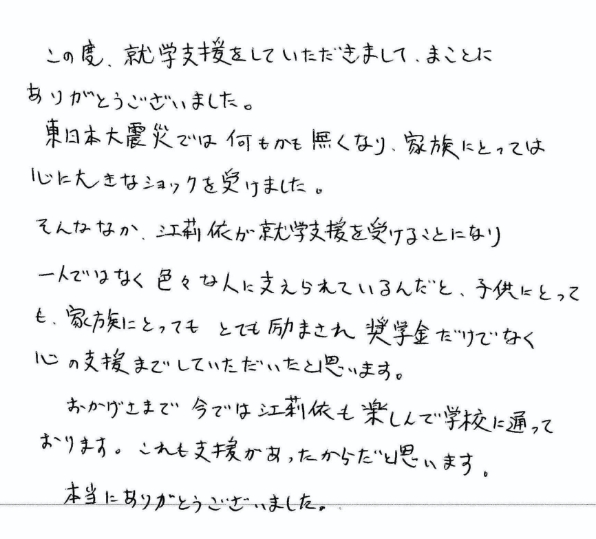 この度、就学支援をしていただきまして、まことに
ありがとうございました。
東日本大震災では何もかも無くなり、家族にとっては
心に大きなショックを受けました。
そんななか、江莉依が就学支援を受けることになり
一人ではなく色々な人に支えられているんだと、子供にとって
も、家族にとってもとても励まされ奨学金だけでなく
心の支援までしていただいたと思います。
おかげさまで今では江莉依も楽しんで学校に通って
おります。これも支援があったからだと思います。
本当にありがとうございました。